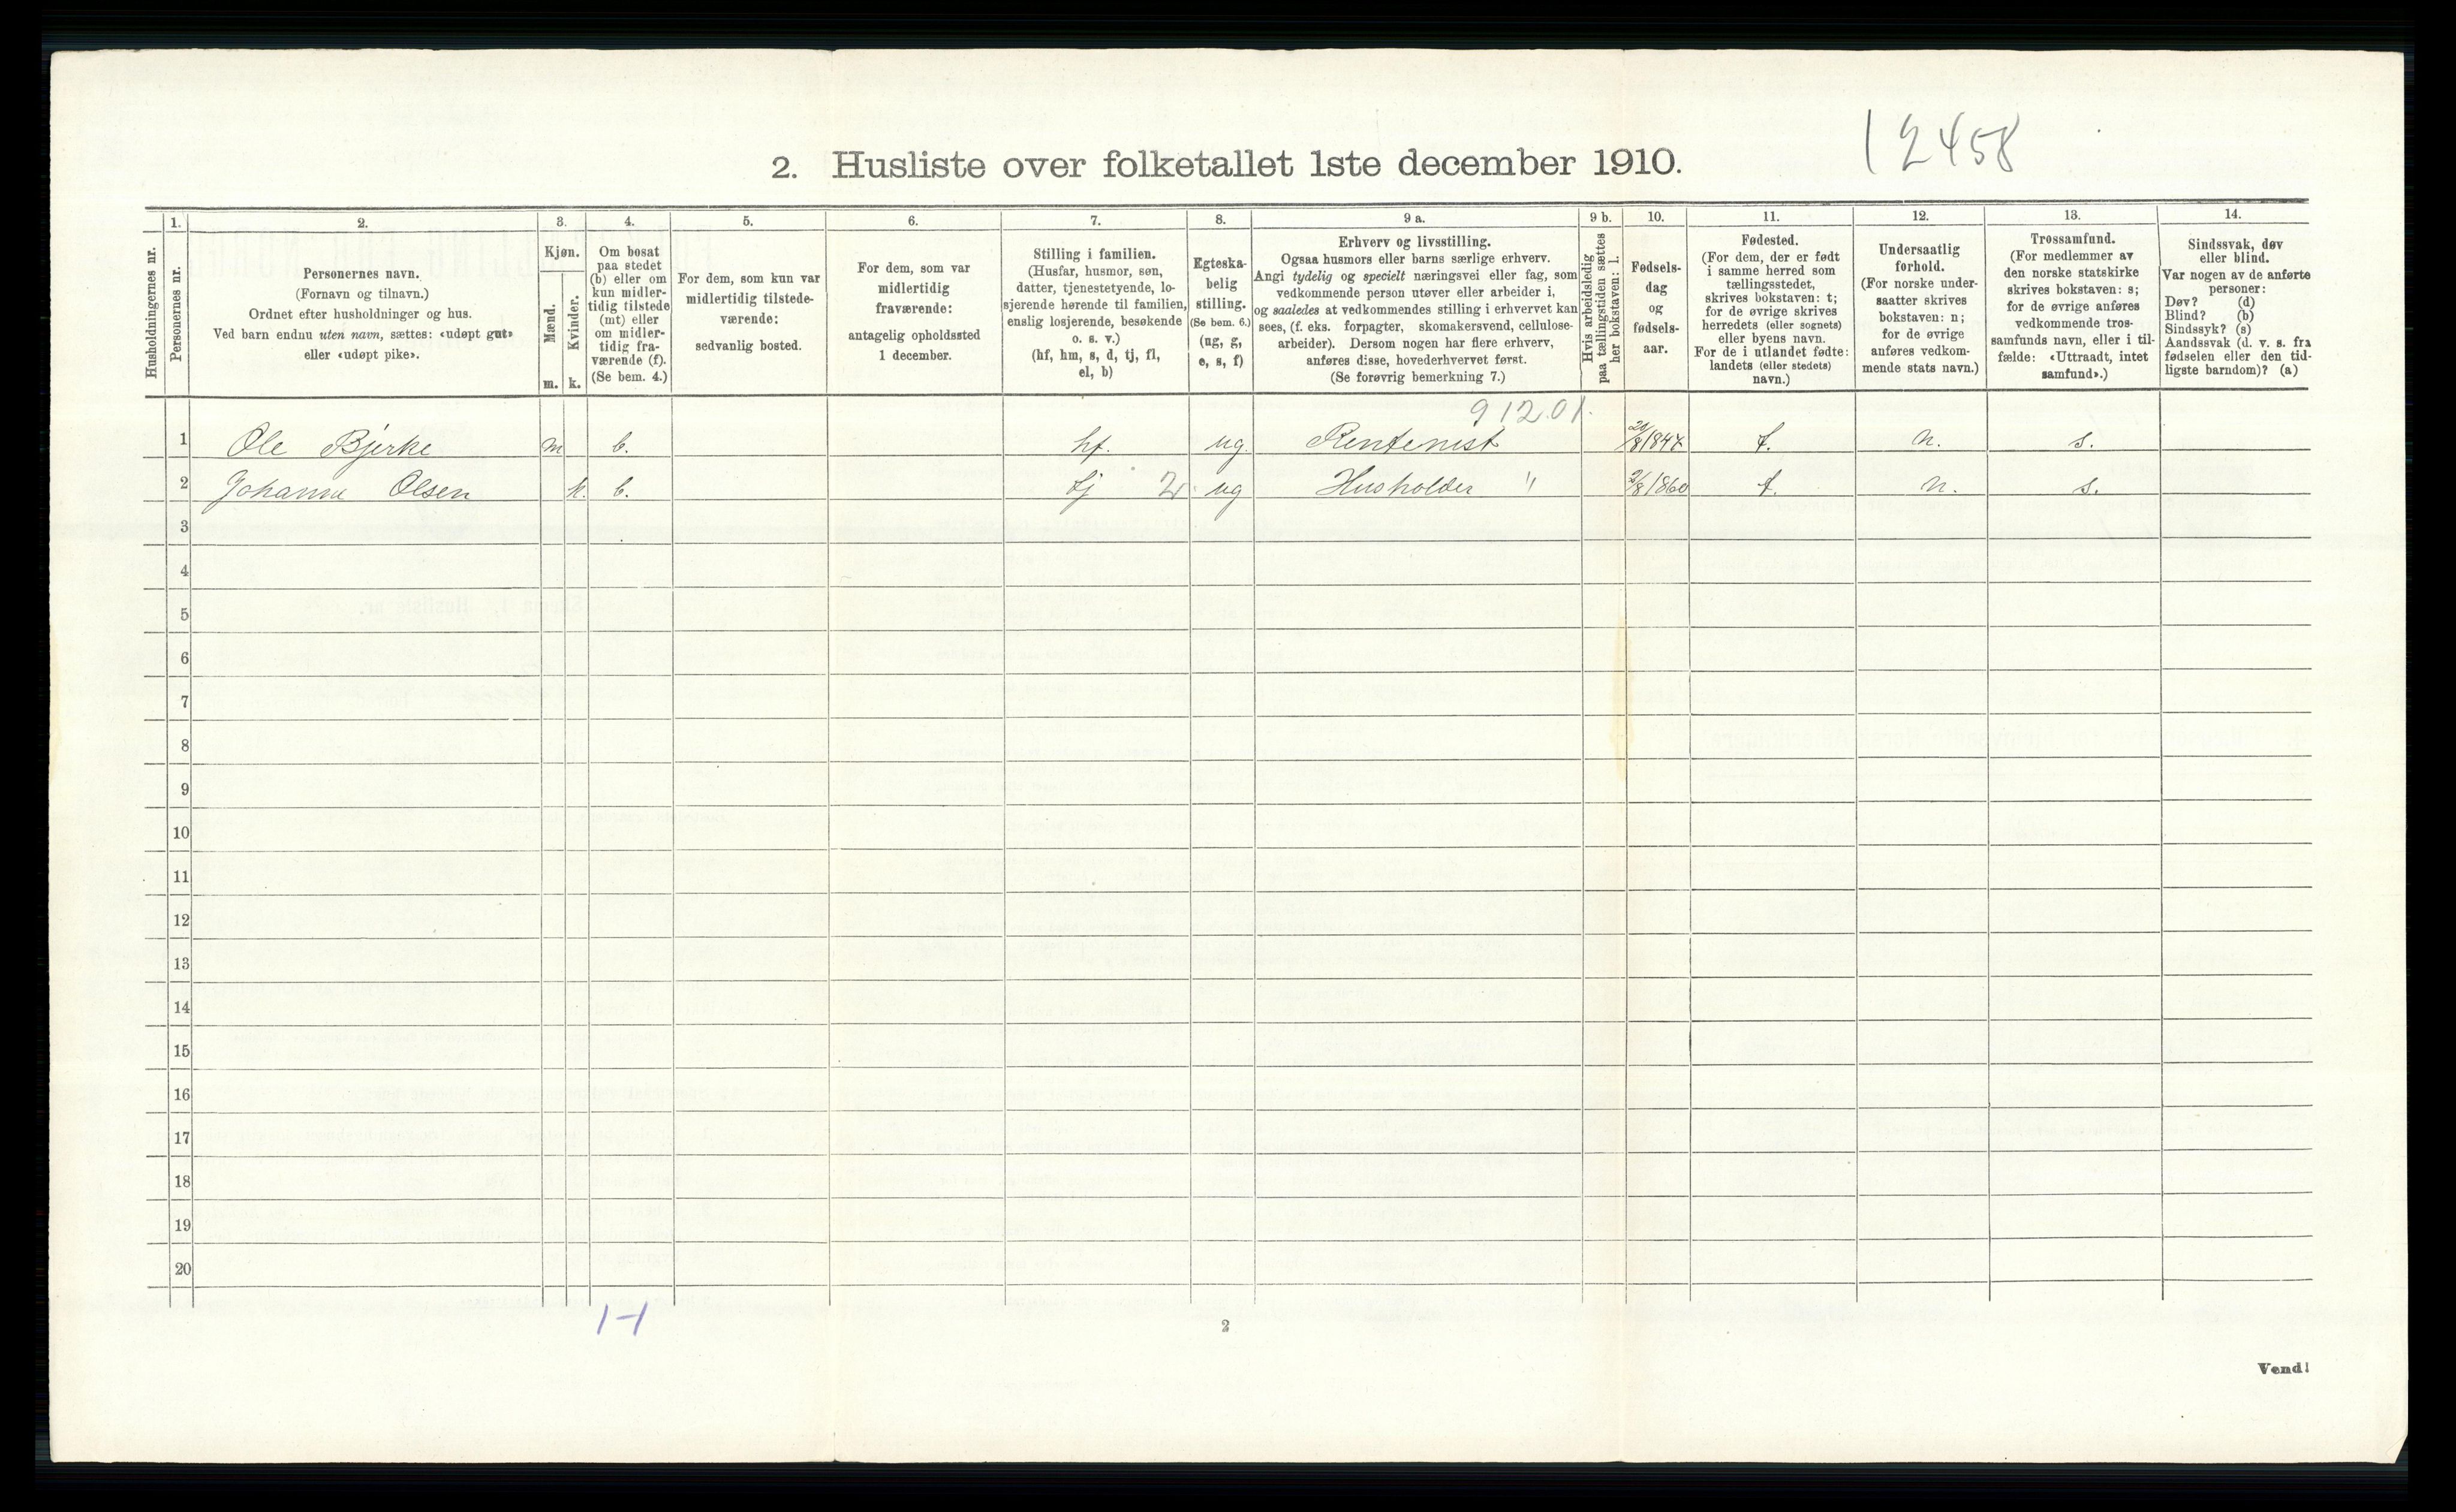 12458
2. Husliste over folketallet 1ste december 1910.
Husholdningernes nr.
1.
Personernes nr.
2.
Personernes navn.
(Fornavn og tilnavn.)
Ordnet efter husholdninger og hus.
Ved barn endnu uten navn, sættes: «udøpt gut»
eller «udøpt pike».
3.
Kjøn.
Mænd.
m.
Kvinder.
k.
4.
Om bosat
paa stedet
(b) eller om
kun midler-
tidig tilstede
(mt) eller
om midler-
tidig fra-
værende (f).
(Se bem. 4.)
5.
For dem, som kun var
midlertidig tilstede-
værende:
sedvanlig bosted.
6.
For dem, som var
midlertidig
fraværende:
antagelig opholdssted
1 december.
7.
Stilling i familien.
(Husfar, husmor, søn,
datter, tjenestetyende, lo-
sjerende hørende til familien,
enslig losjerende, besøkende
o. s. v.)
(hf, hm, s, d, tj, fl,
el, b)
8.
Egteska-
belig
stilling.
(Se bem. 6.)
(ug, g,
e, s, f)
9 a.
Erhverv og livsstilling.
Ogsaa husmors eller barns særlige erhverv.
Angi tydelig og specielt næringsvei eller fag, som
vedkommende person utøver eller arbeider i,
og saaledes at vedkommendes stilling i erhvervet kan
sees, (f. eks. forpagter, skomakersvend, cellulose-
arbeider). Dersom nogen har flere erhverv,
anføres disse, hovederhvervet først.
(Se forøvrig bemerkning 7.)
9 b.
Hvis arbeidsledig
paa tællingstiden sættes
her bokstaven: l.
10.
Fødsels-
dag
og
fødsels-
aar.
11.
Fødested.
(For dem, der er født
i samme herred som
tællingsstedet,
skrives bokstaven: t;
for de øvrige skrives
herredets (eller sognets)
eller byens navn.
For de i utlandet fødte:
landets (eller stedets)
navn.)
12.
Undersaatlig
forhold.
(For norske under-
saatter skrives
bokstaven: n;
for de øvrige
anføres vedkom-
mende stats navn.)
13.
Trossamfund.
(For medlemmer av
den norske statskirke
skrives bokstaven: s;
for de øvrige anføres
vedkommende tros-
samfunds navn, eller i til-
fælde: «Uttraadt, intet
samfund».)
14.
Sindssvak, døv
eller blind.
Var nogen av de anførte
personer:
Døv? (d)
Blind? (b)
Sindssyk? (s)
Aandssvak (d. v. s. fra
fødselen eller den tid-
ligste barndom)? (a)
912.01.
1 Ole Bjerke m b. hf. ug. Rentenist t. n. s.
2 Johanne Olsen k. b. tj ug Husholder " t. n. s.
3
4
5
6
7
8
9
10
11
12
13
14
15
16
17
18
19
20
1-1
2
Vend!